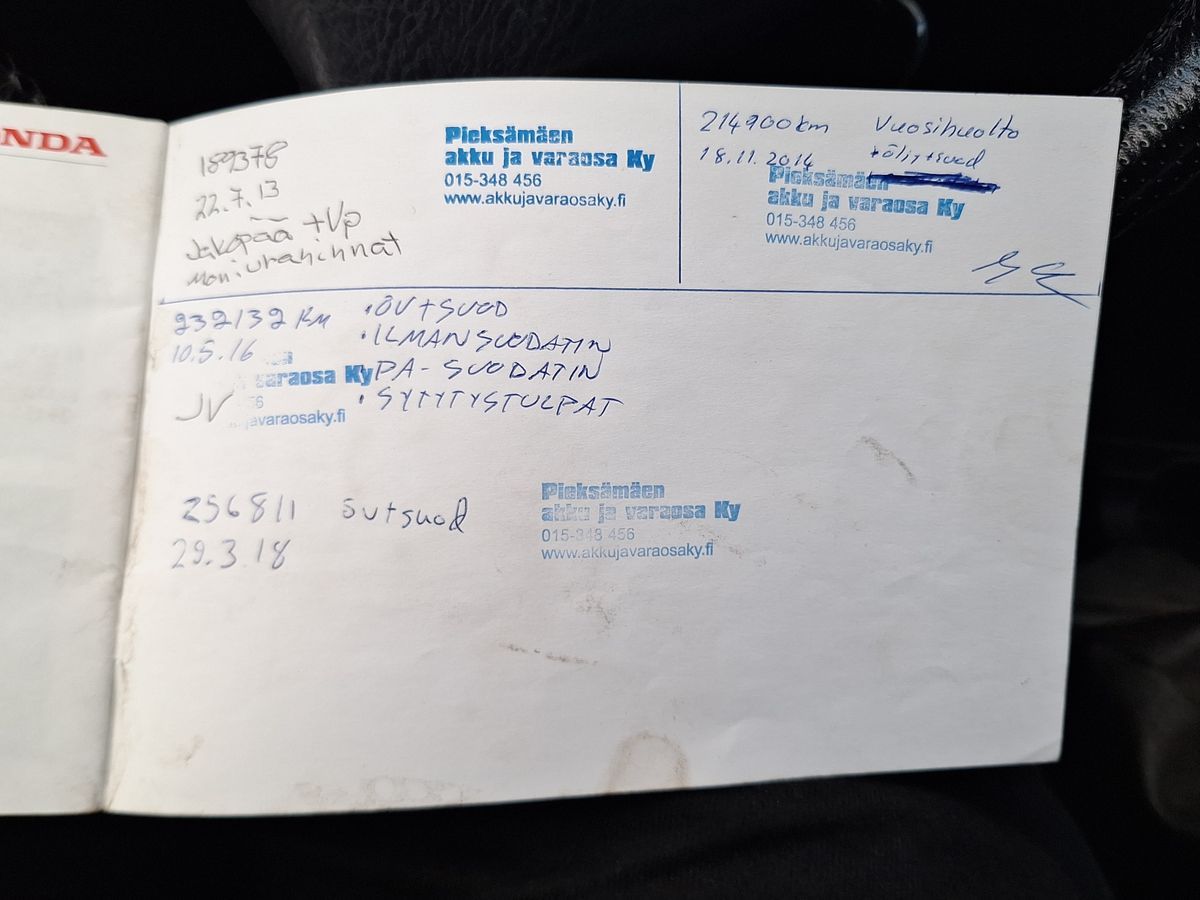 ONDA
189378
22.7.13
Jakopää + Vp
moniurahihnat
Pieksämäen
akku ja varaosa Ky
015-348 456
www.akkujavaraosaky.fi
214900km Vuosihuolto
18.11.2014 +öljyt+suod
Pieksämäen
akku ja varaosa Ky
015-348 456
www.akkujavaraosaky.fi
232132 KM
10.5.16
varaosa Ky
56
javaraosaky.fi
JV
• ÖV+SUOD
• ILMANSUODATIN
PA-SUODATIN
• SYTYTYSTULPAT
256811 öv+suod
29.3.18
Pieksämäen
akku ja varaosa Ky
015-348 456
www.akkujavaraosaky.fi